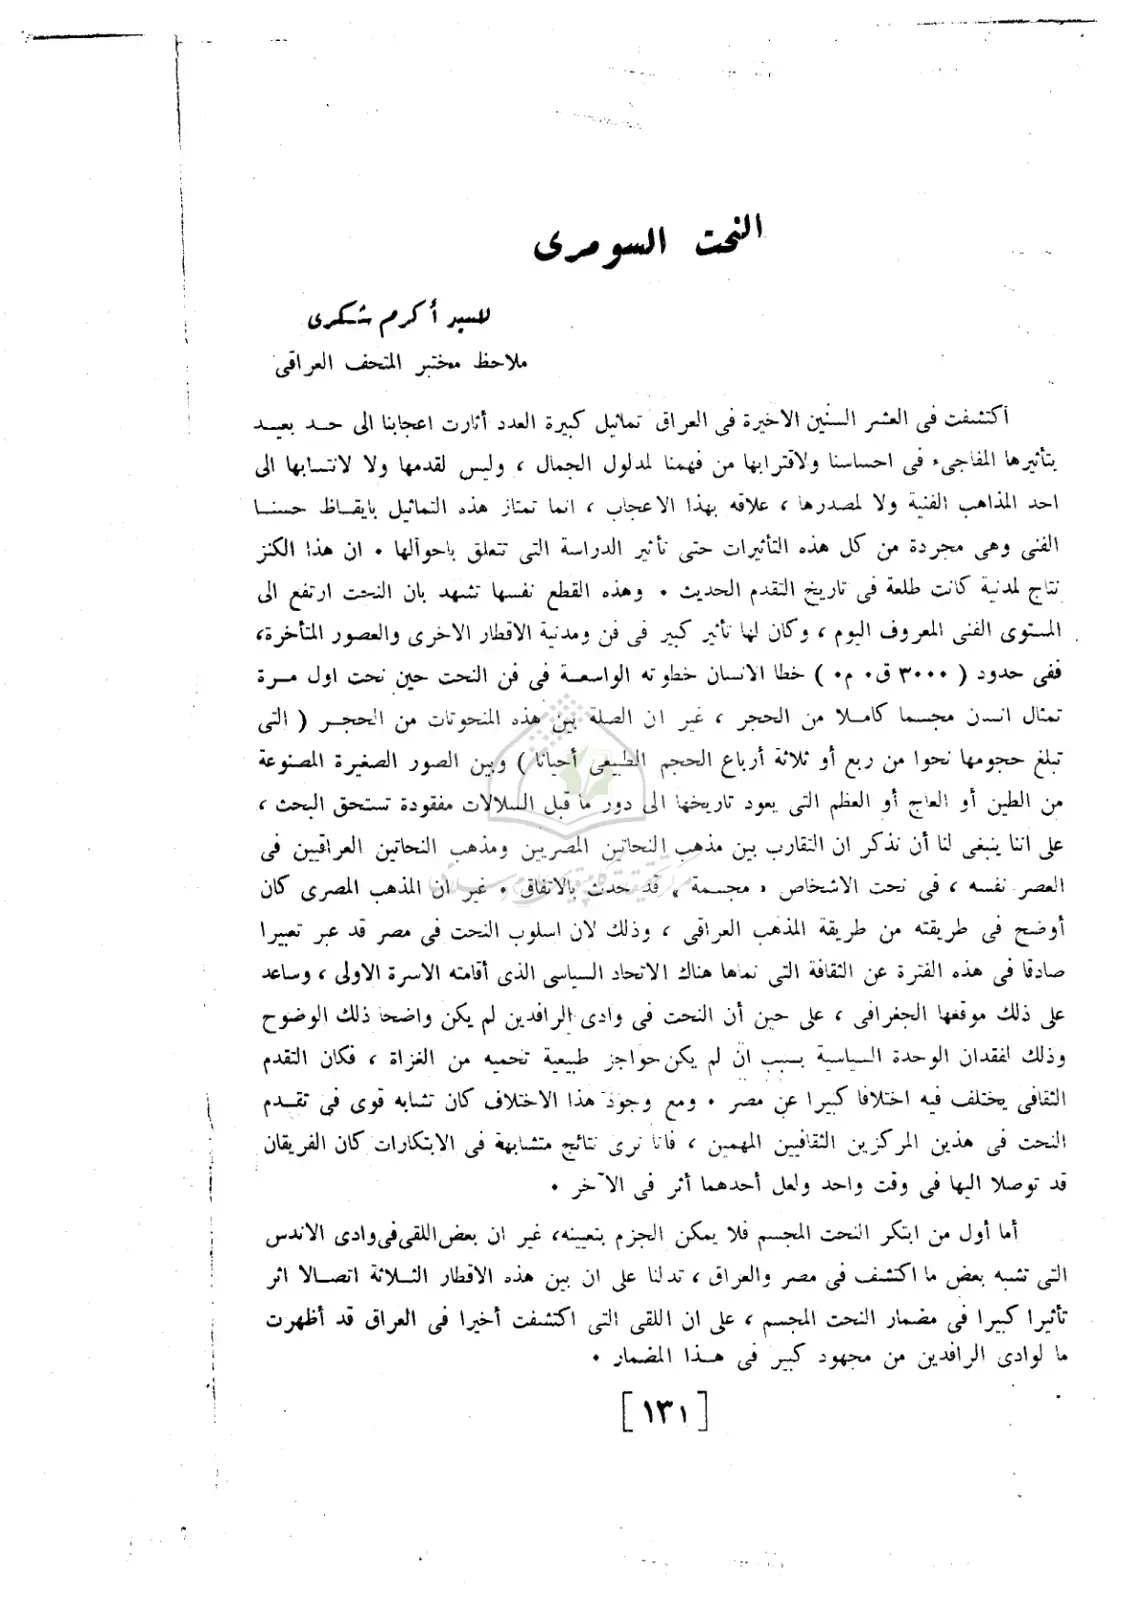 النحت السومرى
للسيد أكرم شكرى
ملاحظ مختبر المتحف العراقى
اكتشفت فى العشر السنين الاخيرة فى العراق تماثيل كبيرة العدد أثارت اعجابنا الى حــد بعيــد
بتأثيرها المفاجىء فى احساسنا ولاقترابها من فهمنا لمدلول الجمال ، وليس لقدمها ولا لانتسابها الى
احد المذاهب الفنية ولا لمصدرها ، علاقه بهذا الاعجاب ، انما تمتاز هذه التماثيل بايقــاظ حسنــا
الفنى وهى مجردة من كل هذه التأثيرات حتى تأثير الدراسة التى تتعلق باحوالها ٠ ان هذا الكنز
نتاج لمدنية كانت طلعة فى تاريخ التقدم الحديث ٠ وهذه القطع نفسها تشهد بان النحت ارتفع الى
المستوى الفنى المعروف اليوم ، وكان لها تأثير كبير فى فن ومدنية الاقطار الاخرى والعصور المتأخرة،
ففى حدود ( ٣٠٠٠ ق٠ م٠ ) خطا الانسان خطوته الواسعــة فى فن النحت حين نحت اول مــرة
تمثال انسن مجسما كامــلا من الحجر ، غير ان الصلة بين هذه المنحوتات من الحجــر ( التى
تبلغ حجومها نحوا من ربع أو ثلاثة أرباع الحجم الطبيعى أحيانا ) وبين الصور الصغيرة المصنوعة
من الطين أو العاج أو العظم التى يعود تاريخها الى دور ما قبل السلالات مفقودة تستحق البحث ،
على اننا ينبغى لنا أن نذكر ان التقارب بين مذهب النحاتين المصريين ومذهب النحاتين العراقيين فى
العصر نفسه ، فى نحت الاشخاص « مجسمة » قد حدث بالاتفاق ٠ غير ان المذهب المصرى كان
أوضح فى طريقته من طريقة المذهب العراقى ، وذلك لان اسلوب النحت فى مصر قد عبر تعبيرا
صادقا فى هذه الفترة عن الثقافة التى نماها هناك الاتحاد السياسى الذى أقامته الاسرة الاولى ، وساعد
على ذلك موقعها الجغرافى ، على حين أن النحت فى وادى الرافدين لم يكن واضحا ذلك الوضوح
وذلك لفقدان الوحدة السياسية بسبب ان لم يكن حواجز طبيعية تحميه من الغزاة ، فكان التقدم
الثقافى يختلف فيه اختلافا كبيرا عن مصر ٠ ومع وجود هذا الاختلاف كان تشابه قوى فى تقــدم
النحت فى هذين المركزين الثقافيين المهمين ، فانا نرى نتائج متشابهة فى الابتكارات كان الفريقان
قد توصلا اليها فى وقت واحد ولعل أحدهما أثر فى الآخر ٠
أما أول من ابتكر النحت المجسم فلا يمكن الجزم بتعيينه، غير ان بعض اللقى فى وادى الاندس
التى تشبه بعض ما اكتشف فى مصر والعراق ، تدلنا على ان بين هذه الاقطار الثــلاثة اتصــالا اثر
تأثيرا كبيرا فى مضمار النحت المجسم ، على ان اللقى التى اكتشفت أخيرا فى العراق قد أظهرت
ما لوادى الرافدين من مجهود كبير فى هــذا المضمار ٠
[ ١٣١ ]